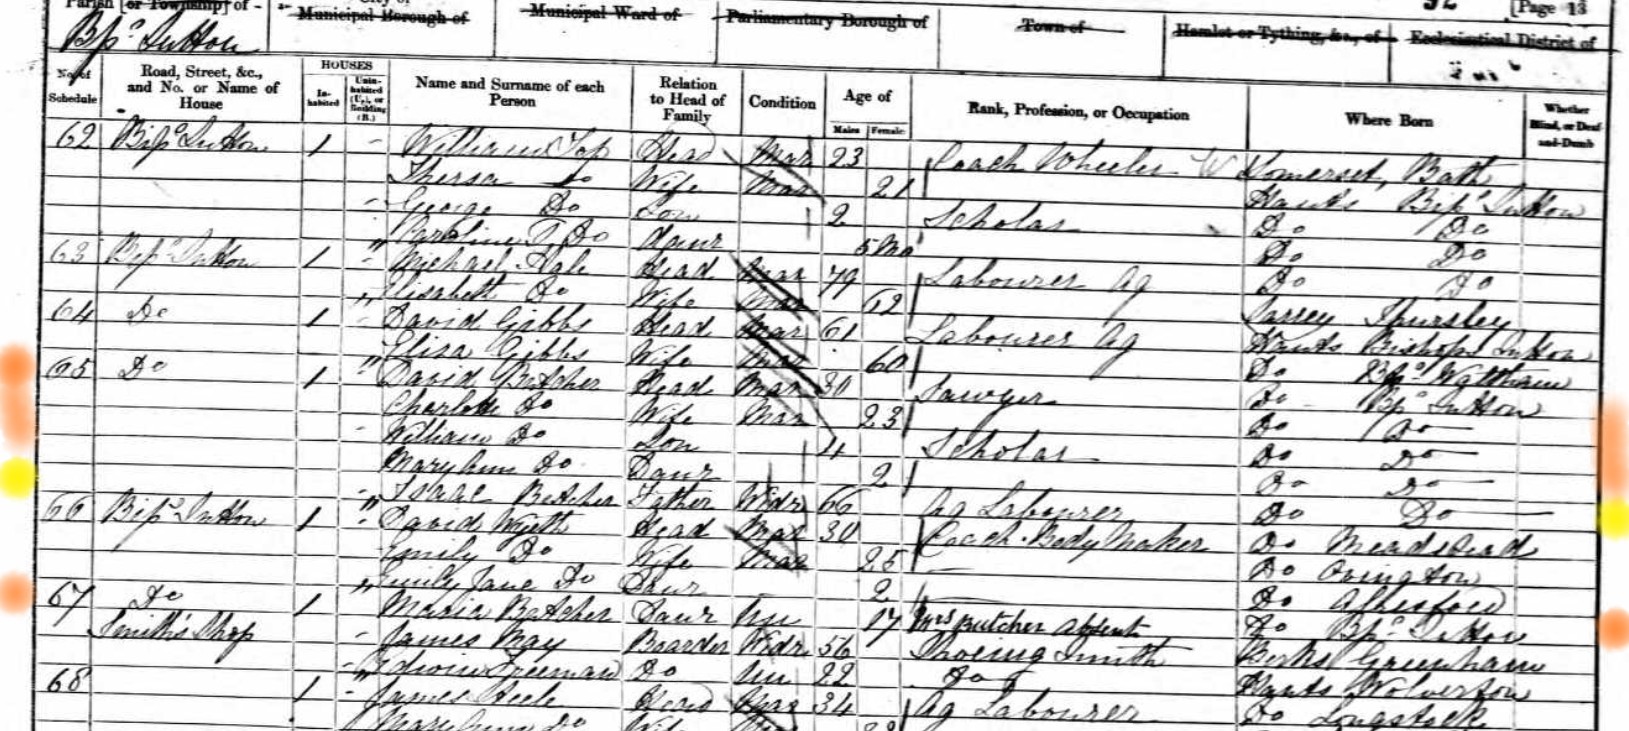 Parish [or Township] of - City or Municipal Borough of Municipal Ward of Parliamentary Borough of Town of Hamlet or Tything, &c., of Ecclesiastical District of [Page 13
Bps Sutton
No. of Schedule Road, Street, &c., and No. or Name of House HOUSES Inhabited Uninhabited (U.), or Building (B.) Name and Surname of each Person Relation to Head of Family Condition Age of Males Females Rank, Profession, or Occupation Where Born Whether Blind, or Deaf-and-Dumb
62 Bips Sutton 1 William Top Head Mar 23 Coach Wheeler Somerset, Bath
Thersa Do Wife Mar 21 Hants Bips Sutton
George Do Son 2 Scholar Do Do
Caroline T. Do Daur 5 Mo Do Do
63 Bips Sutton 1 Michael Hale Head Mar 79 Labourer Ag Do Do
Elisabeth Do Wife Mar 62 Surrey Thursley
64 Do 1 David Gibbs Head Mar 61 Labourer Ag Hants Bishops Sutton
Eliza Gibbs Wife Mar 60 Do Bps Waltham
65 Do 1 David Butcher Head Mar 30 Sawyer Do Bps Sutton
Charlotte Do Wife Mar 23 Do Do
William Do Son 4 Scholar Do Do
Mary Ann Do Daur 2 Do Do
Isaac Butcher Father Widr 66 Ag Labourer Do Do
66 Bips Sutton 1 David Wyett Head Mar 30 Coach Body Maker Do Meadstead
Emily Do Wife Mar 25 Do Ovington
Emily Jane Do Daur 2 Do Alresford
67 Do 1 Maria Butcher Daur Un 17 Mrs Butcher absent Do Bps Sutton
Smith's Shop James May Boarder Widr 56 Shoeing Smith Berks Greenham
Edwin Freeman Do Un 22 Do Hants Wolverton
68 1 James Steele Head Mar 34 Ag Labourer Do Longstock
Mary Ann Do Wife